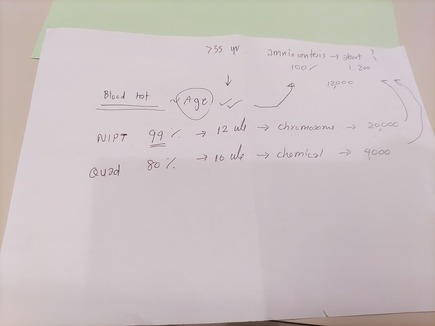 >35 yr Amniocentesis → abort ?
100% 1:200
12,000
Blood test Age
NIPT 99% → 12 wk → chromosome → 20,000
Quad 80% → 16 wk → chemical → 4,000